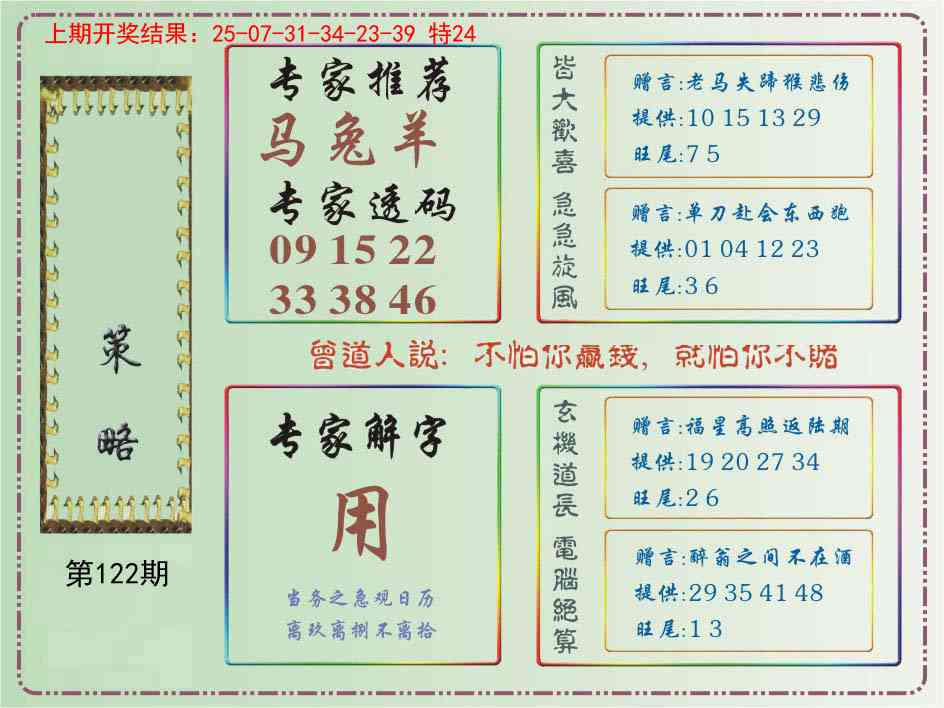 上期开奖结果：25-07-31-34-23-39 特24
策略
第122期
专家推荐
马兔羊
专家透码
09 15 22
33 38 46
皆大歡喜
赠言:老马失蹄猴悲伤
提供:10 15 13 29
旺尾:7 5
急急旋風
赠言:单刀赴会东西跑
提供:01 04 12 23
旺尾:3 6
曾道人説：不怕你贏錢，就怕你不賭
专家解字
用
当务之急观日历
离玖离捌不离拾
玄機道長
赠言:福星高照返陆期
提供:19 20 27 34
旺尾:2 6
電腦絕算
赠言:醉翁之间不在酒
提供:29 35 41 48
旺尾:1 3